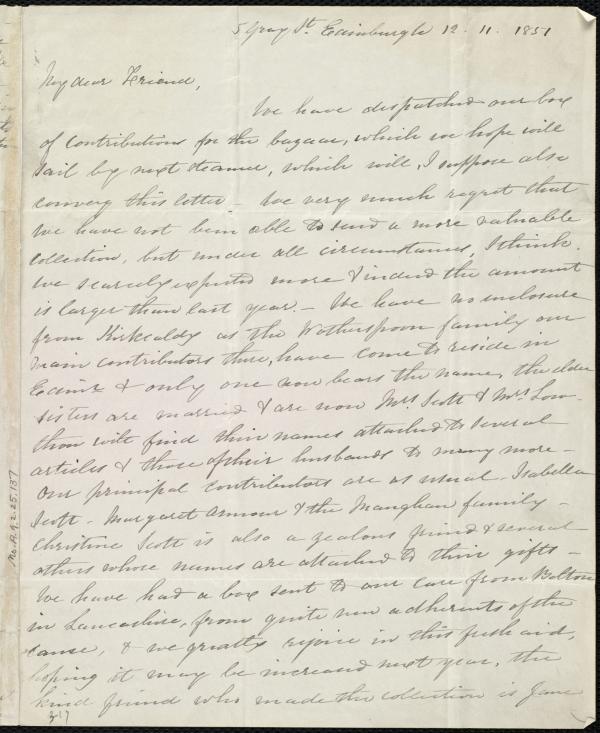 5 Gray St. Edinburgh 12. 11. 1851
My dear Friend,
We have dispatched our box
of contributions for the bazaar, which we hope will
sail by next steamer, which will, I suppose also
convey this letter - We very much regret that
we have not been able to send a more valuable
collection, but under all circumstances, I think
we scarcely expected more & indeed the amount
is larger than last year. - We have no enclosure
from Kirkcaldy as the Wotherspoon family our
main contributors there, have come to reside in
Edinr & only one now bears the name, the elder
sisters are married & are now Mrs. Scott & Mrs. Low-
thou wilt find their names attached to several
articles & those of their husbands to many more -
Our principal contributors are as usual - Isabella
Scott - Margaret Armour & the Maughan family -
Christine Scott is also a zealous friend & several
others whose names are attached to their gifts -
We have had a box sent to our care from Bolton
in Lancashire, from quite new adherents of the
cause, & we greatly rejoice in this fresh aid,
hoping it may be increased next year, the
kind friend who made the collection is Jane
Ms.A.9.2.25.137